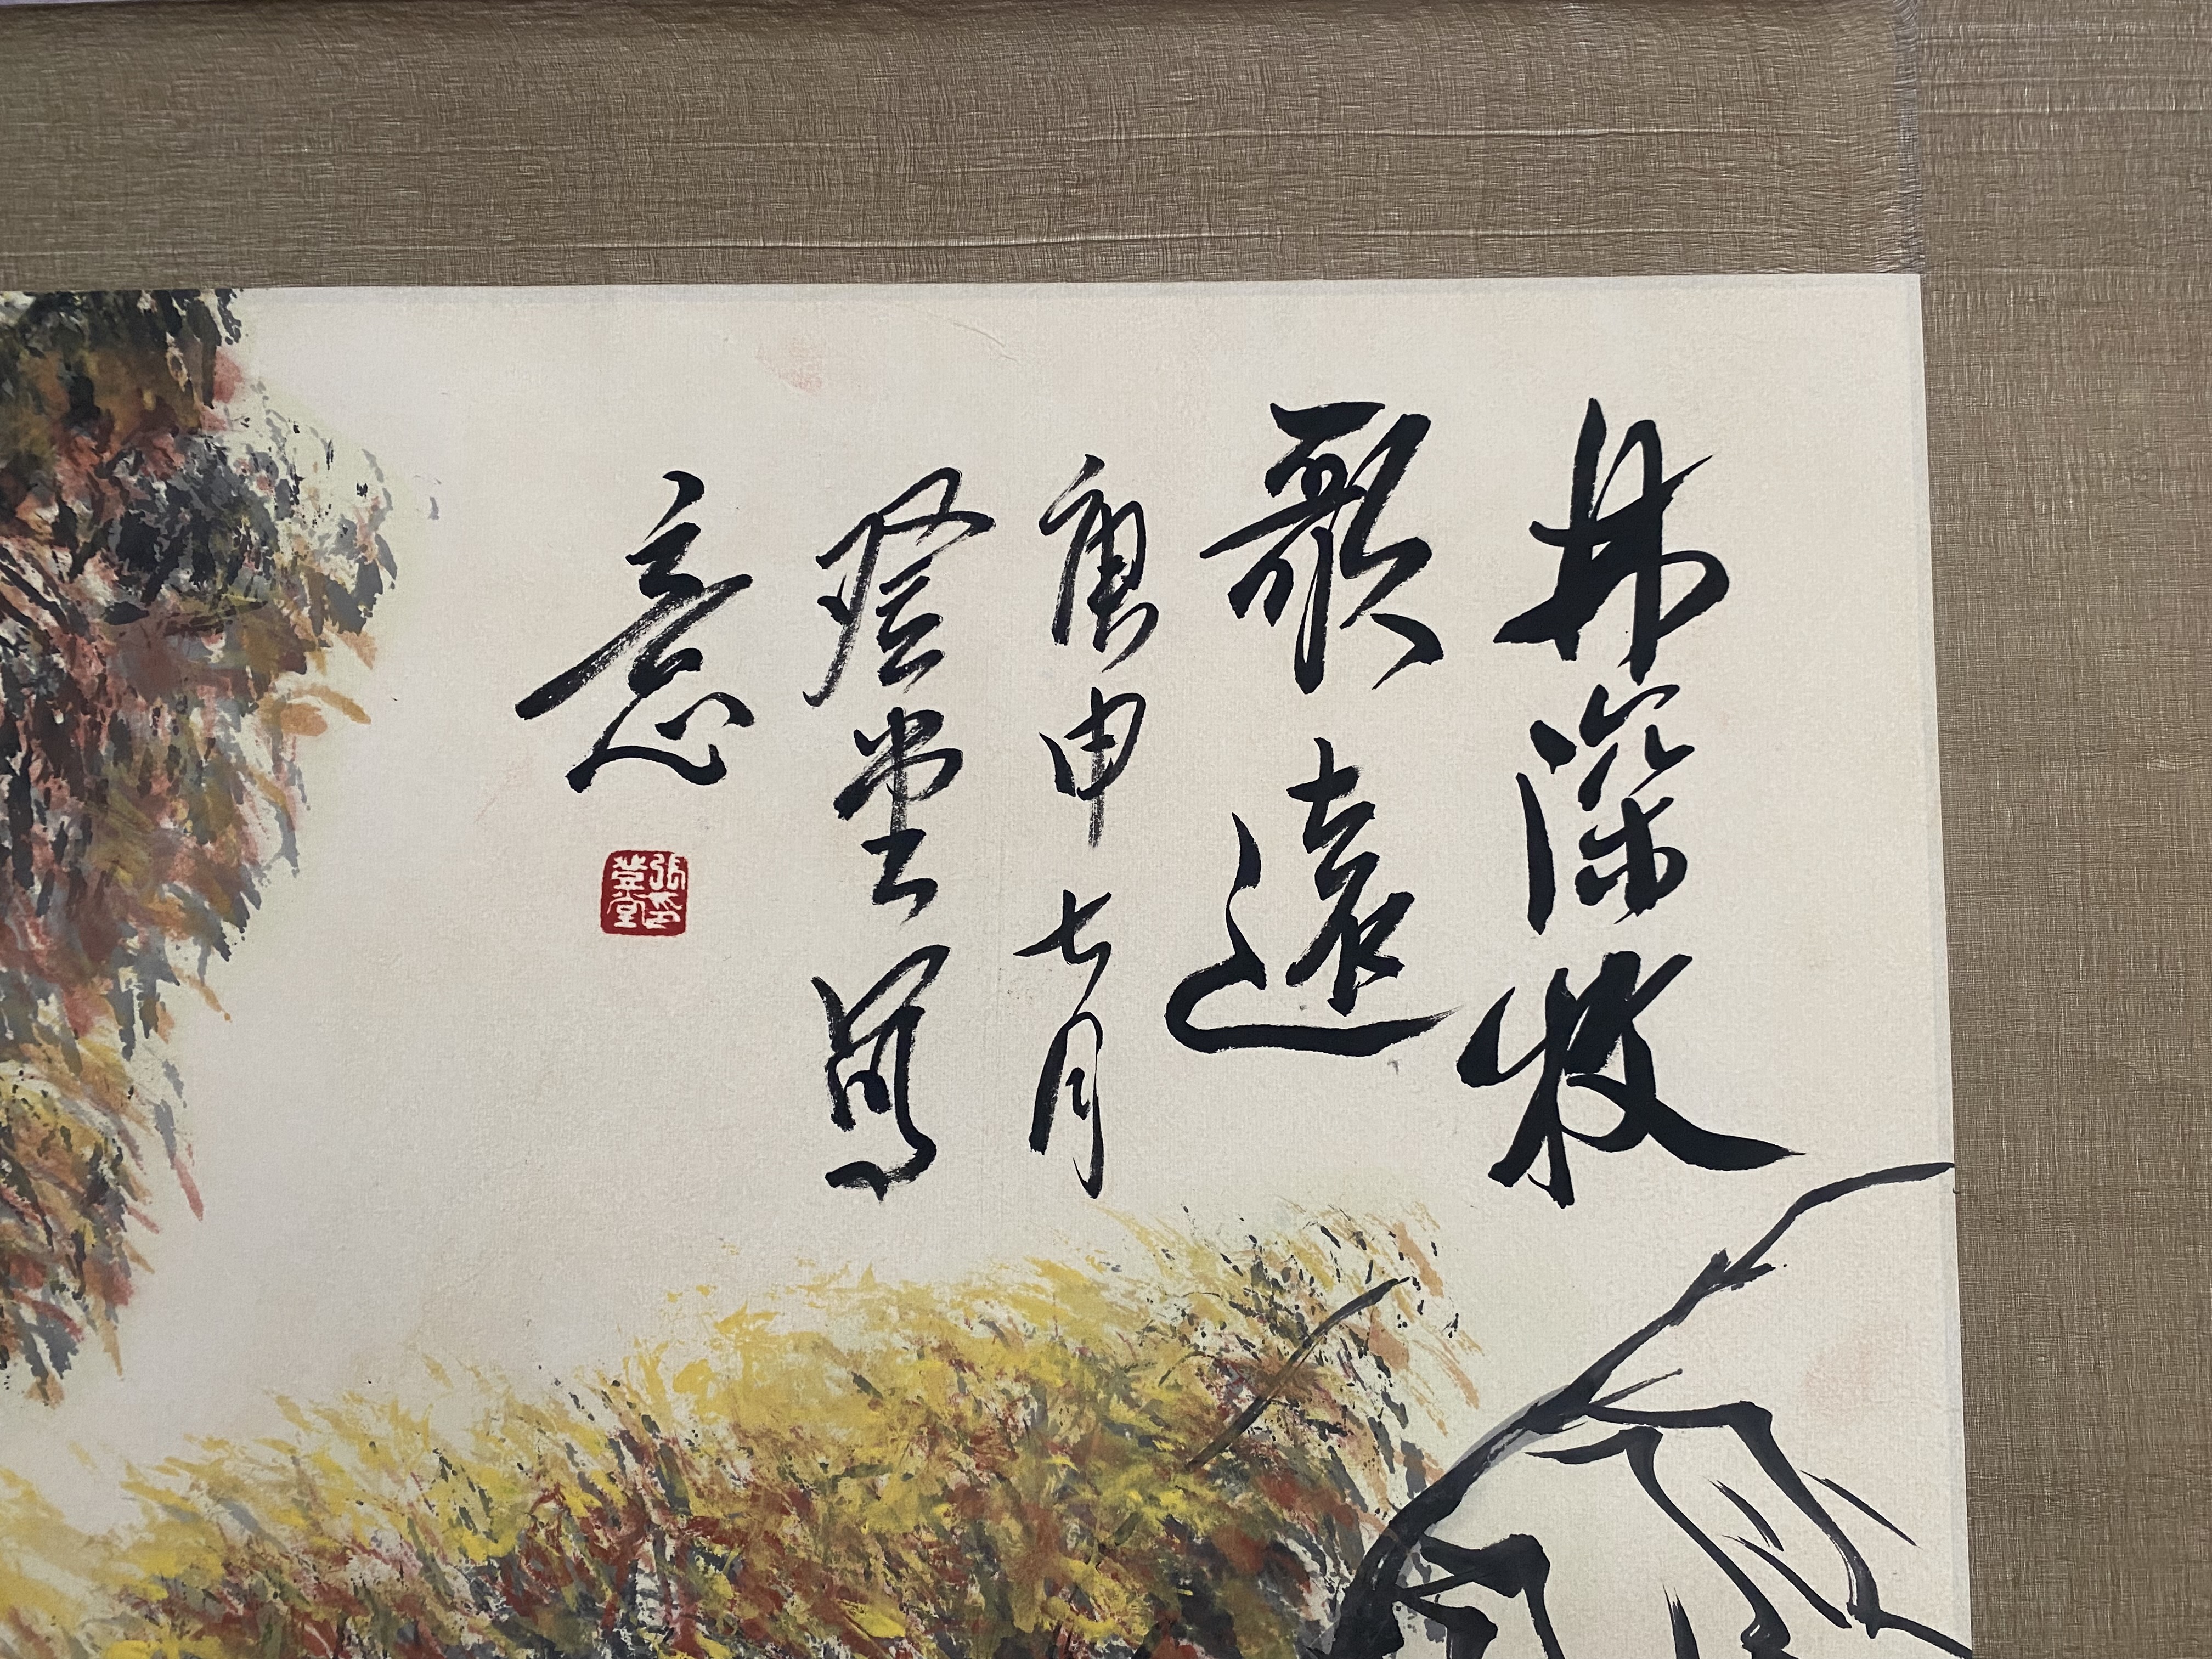 林深牧
歌遠
庚申七月
登堂寫
意
張登堂印